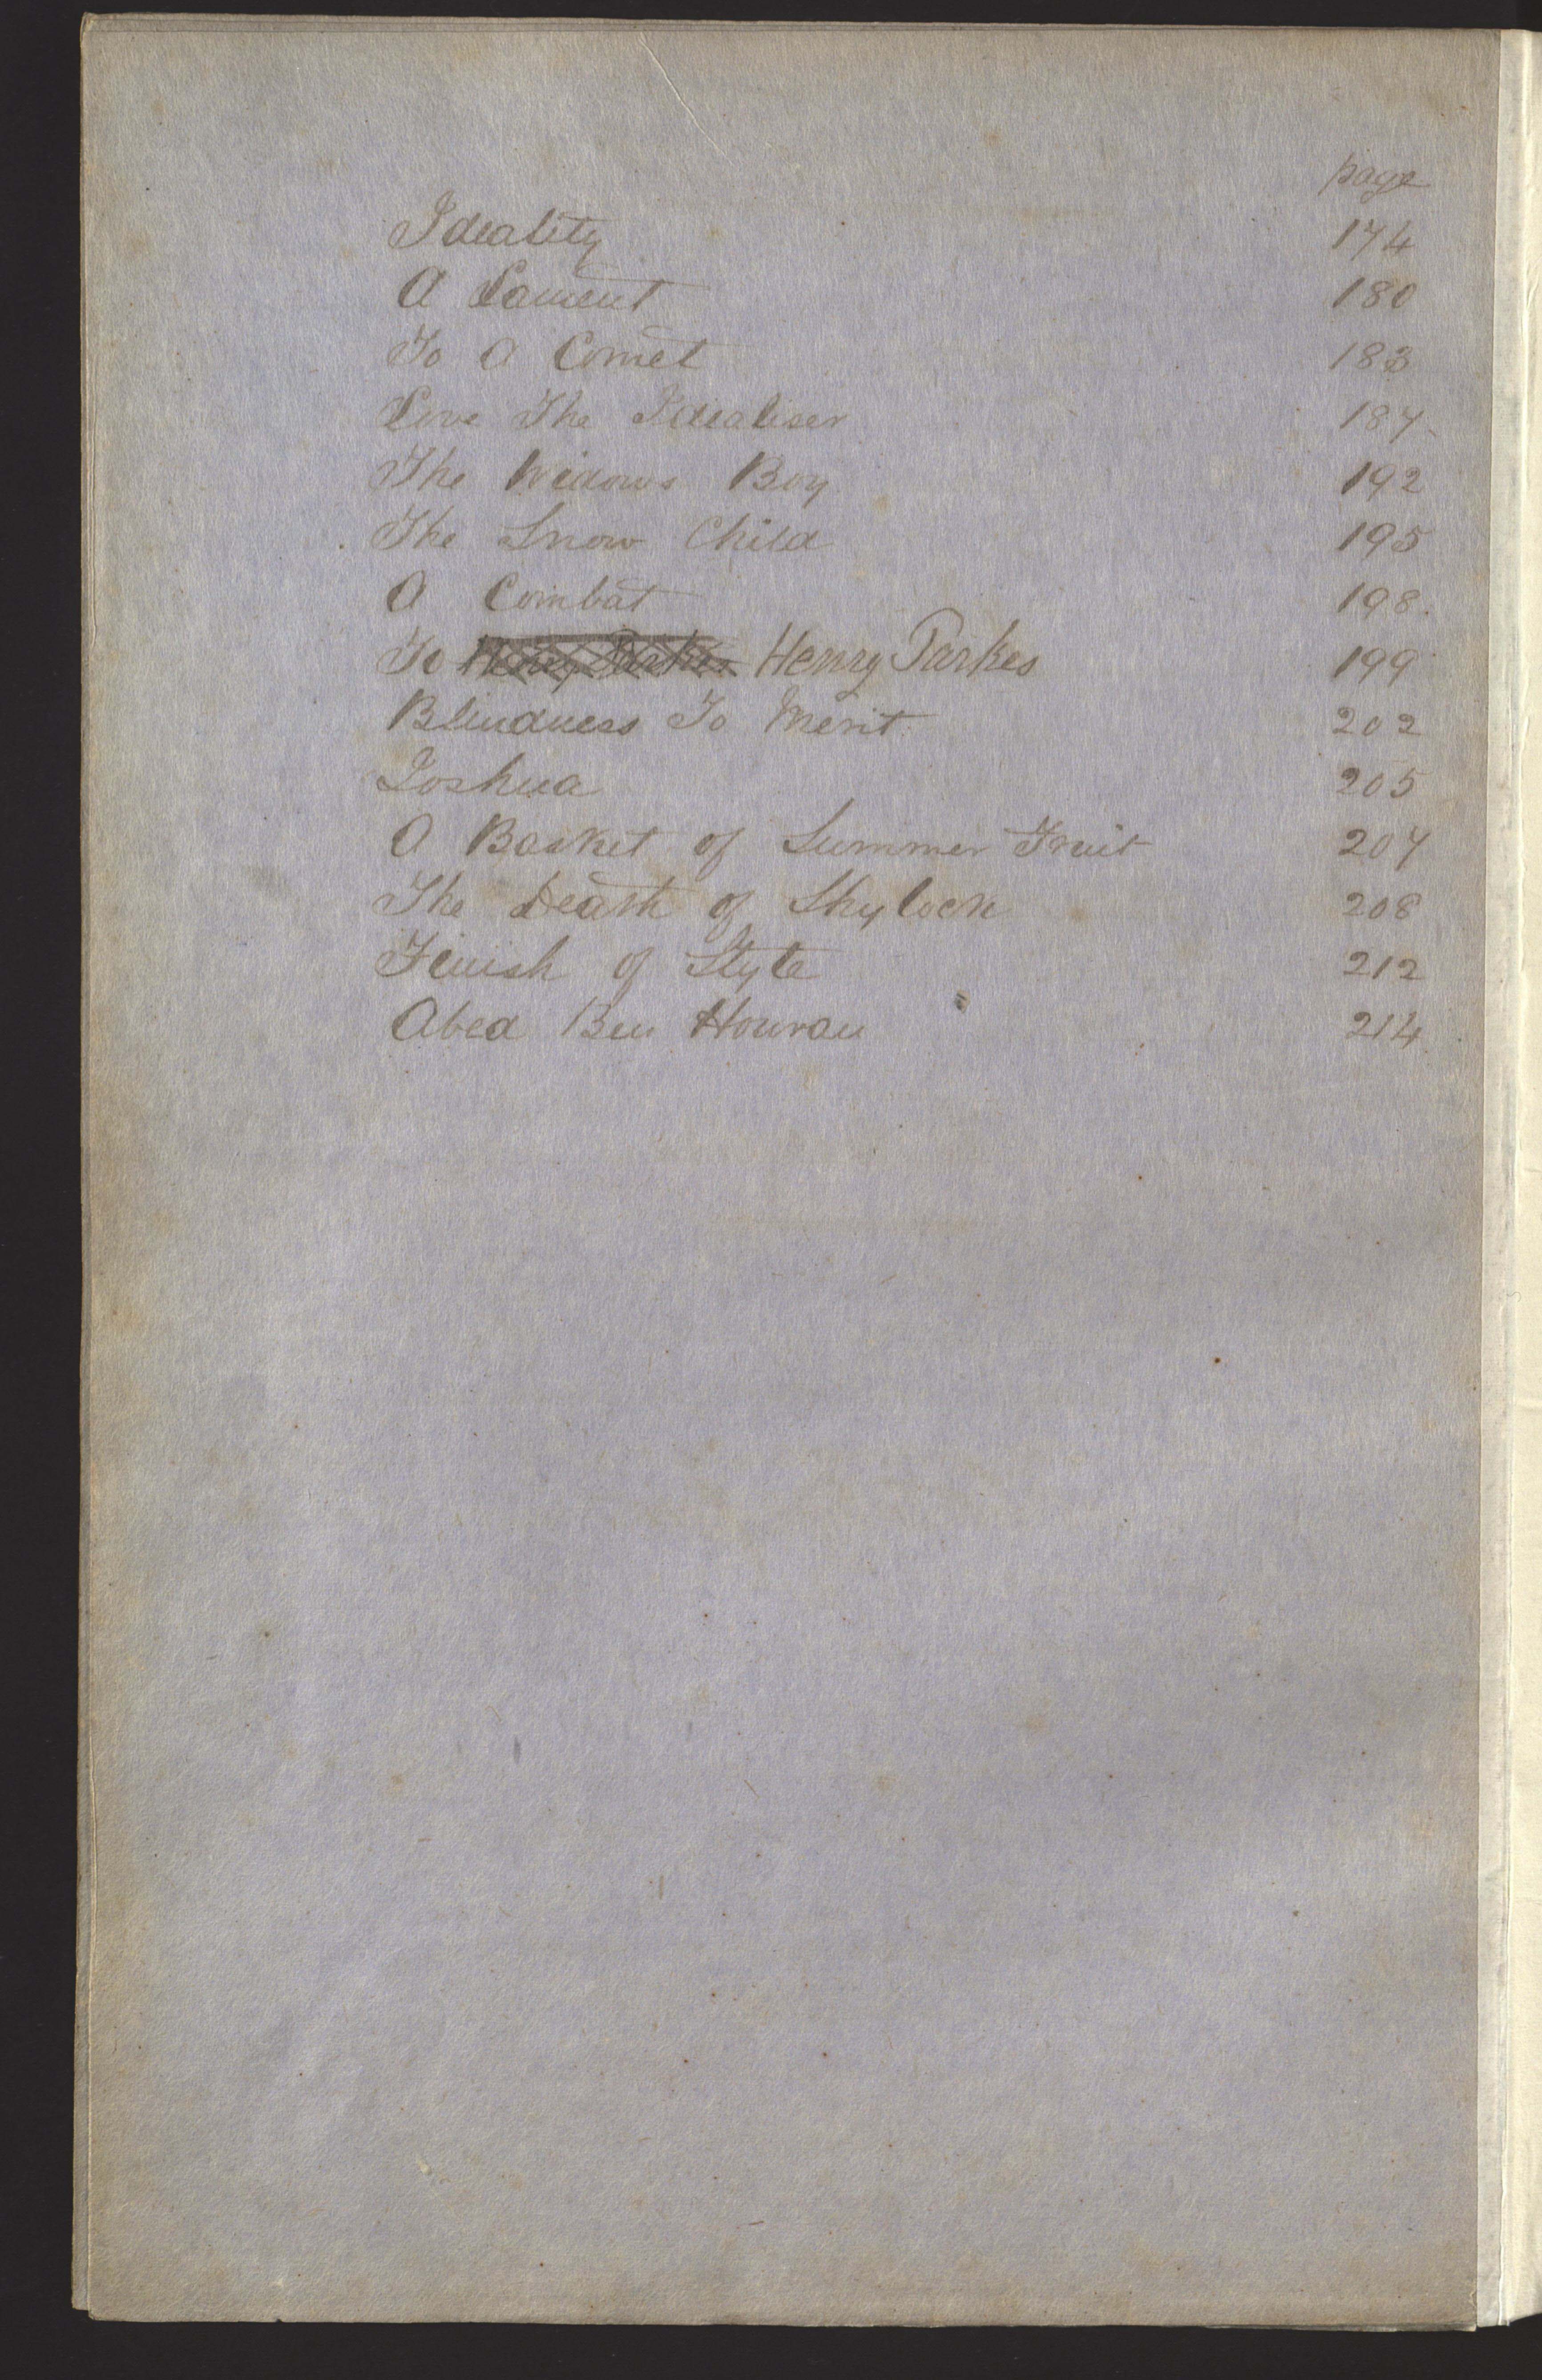 page
Ideality 174
A Lament 180
To A Comet 183
Love The Idealiser 187
The Widows Boy 192
The Snow Child 195
A Combat 198.
To Henry Parkes Henry Parkes 199
Blindness To Merit 202
Joshua 205
A Basket of Summer Fruit 207
The Death of Shylock 208
Finish of Style 212
Abed Ben Houran 214